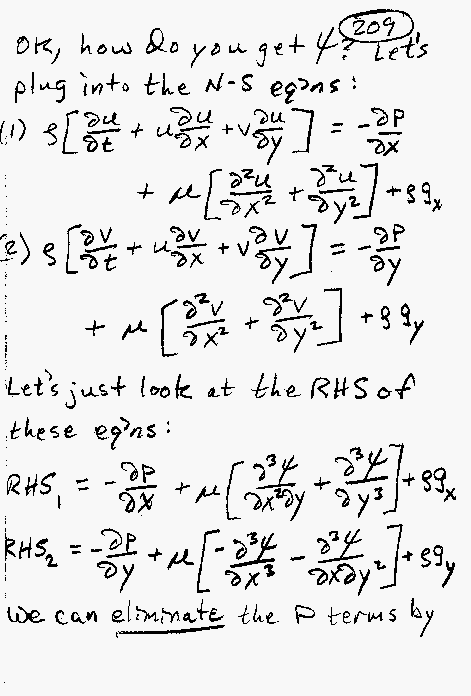 209
OK, how do you get ψ? Let's
plug into the N-S eq'ns:
(1) ρ[∂u/∂t + u ∂u/∂x + v ∂u/∂y] = -∂P/∂x
+ μ[∂²u/∂x² + ∂²u/∂y²] + ρg_x
(2) ρ[∂v/∂t + u ∂v/∂x + v ∂v/∂y] = -∂P/∂y
+ μ[∂²v/∂x² + ∂²v/∂y²] + ρg_y
Let's just look at the RHS of
these eq'ns:
RHS₁ = -∂P/∂x + μ[∂³ψ/∂x²∂y + ∂³ψ/∂y³] + ρg_x
RHS₂ = -∂P/∂y + μ[-∂³ψ/∂x³ - ∂³ψ/∂x∂y²] + ρg_y
We can eliminate the P terms by